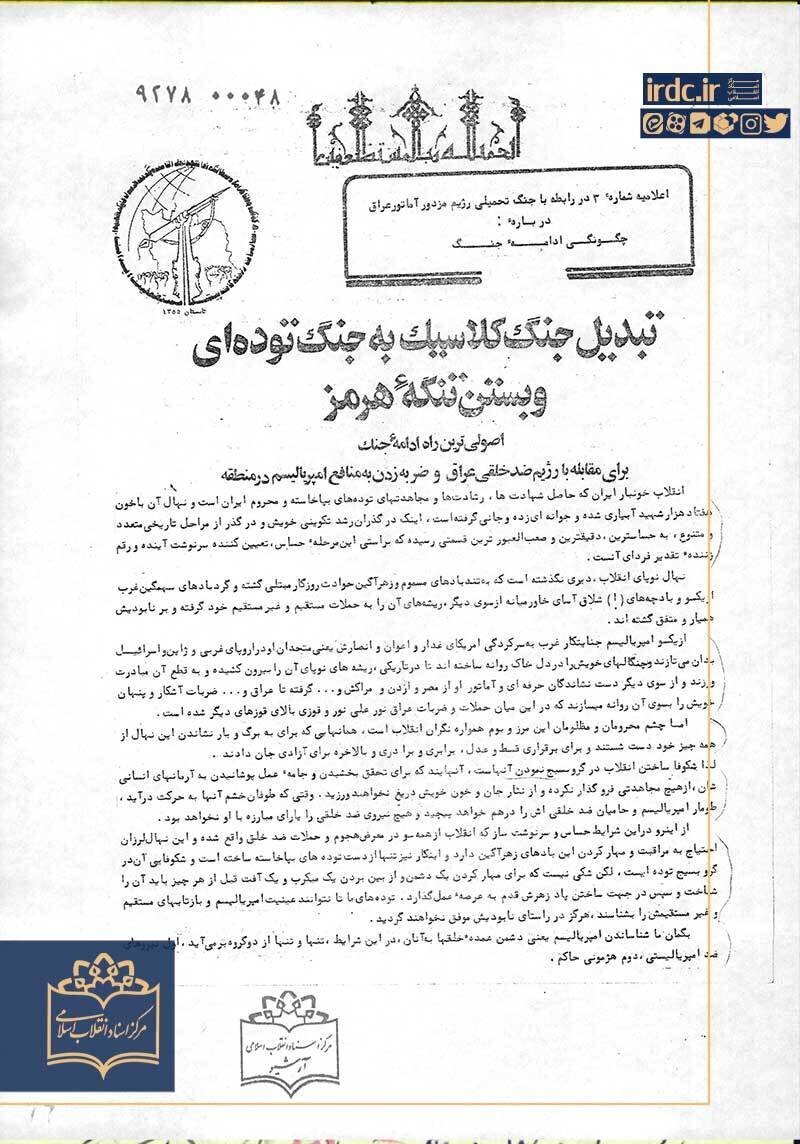 irdc.ir
مرکز اسناد انقلاب اسلامی
۹۲۷۸ ۰۰۰۴۸
اعلامیه شماره ۳ در رابطه با جنگ تحمیلی رژیم مزدور آماتور عراق
در باره :
چگونگی ادامه جنگ
تابستان ۱۳۵۵
تبدیل جنگ کلاسیک به جنگ توده‌ای
و بستن تنگهٔ هرمز
اصولی‌ترین راه ادامهٔ جنگ
برای مقابله با رژیم ضد خلقی عراق و ضربه زدن به منافع امپریالیسم در منطقه
انقلاب خونبار ایران که حاصل شهادت ها ، رشادت‌ها و مجاهدتهای توده‌های بپاخاسته و محروم ایران است و نهال آن با خون
هفتاد هزار شهید آبیاری شده و جوانه ای زده و جانی گرفته است ، اینک در گذران رشد تکوینی خویش و در گذر از مراحل تاریخی متعدد
و متنوع ، به حساسترین ، دقیقترین و صعب‌العبور ترین قسمتی رسیده که براستی این مرحلهٔ حساس ، تعیین کننده سرنوشت آینده و رقم
زنندهٔ تقدیر فردای آنست .
نهال نوپای انقلاب ، دیری نگذشته است که به تندبادهای مسموم و زهرآگین حوادث روزگار مبتلی گشته و گردبادهای سهمگین غرب
ازیکسو و بادچه‌های (!) شلاق آسای خاورمیانه ازسوی دیگر ، ریشه‌های آن را به حملات مستقیم و غیر مستقیم خود گرفته و بر نابودیش
همیار و متفق گشته اند .
ازیکسو امپریالیسم جنایتکار غرب به سرکردگی امریکای غدار و اعوان و انصارش یعنی متحدان او در اروپای غربی و ژاپن و اسرائیل
بدان می‌تازند و چنگالهای خویش را در دل خاک روانه ساخته اند تا در تاریکی ، ریشه های نوپای آن را بیرون کشیده و به قطع آن مبادرت
ورزند و از سوی دیگر دست نشاندگان حرفه ای و آماتور او از مصر و اردن و مراکش و . . . گرفته تا عراق و . . . ضربات آشکار و پنهان
خویش را بسوی آن روانه میسازند که در این میان حملات و ضربات عراق نور علی نور و قوزی بالای قوزهای دیگر شده است .
اما چشم محرومان و مظلومان این مرز و بوم همواره نگران انقلاب است ، همانهایی که برای به برگ و بار نشاندن این نهال از
همه چیز خود دست شستند و برای برقراری قسط و عدل ، برابری و برا دری و بالاخره برای آزادی جان دادند .
لذا شکوفا ساختن انقلاب در گرو بسیج نمودن آنهاست ، آنهایند که برای تحقق بخشیدن و جامهٔ عمل پوشانیدن به آرمانهای انسانی
شان ، از هیچ مجاهدتی فرو گذار نکرده و از نثار جان و خون خویش دریغ نخواهند ورزید . وقتی که طوفان خشم آنها به حرکت درآید ،
طومار امپریالیسم و حامیان ضد خلقی اش را درهم خواهد پیچید و هیچ نیروی ضد خلقی را یارای مبارزه با او نخواهد بود .
از اینرو در این شرایط حساس و سرنوشت ساز که انقلاب از همه سو در معرض هجوم و حملات ضد خلق واقع شده و این نهال لرزان
احتیاج به مراقبت و مهار کردن این بادهای زهرآگین دارد و اینکار نیز تنها از دست توده های بپاخاسته ساخته است و شکوفایی آن در
گرو بسیج توده است ، لکن شکی نیست که برای مهار کردن یک دشمن و از بین بردن یک میکرب و یک آفت قبل از هر چیز باید آن را
شناخت و سپس در جهت ساختن پاد زهرش قدم به عرصهٔ عمل گذارد . توده‌های ما تا نتوانند عینیت امپریالیسم و بازتابهای مستقیم
و غیر مستقیمش را بشناسند ، هرگز در راستای نابودیش موفق نخواهند گردید .
بگمان ما شناساندن امپریالیسم یعنی دشمن عمدهٔ خلقها به آنان ، در این شرایط ، تنها و تنها از دو گروه برمی‌آید ، اول نیروهای
ضد امپریالیستی ، دوم هژمونی حاکم .
مرکز اسناد انقلاب اسلامی
مرکز اسناد انقلاب اسلامی
آرشیو
۱۶